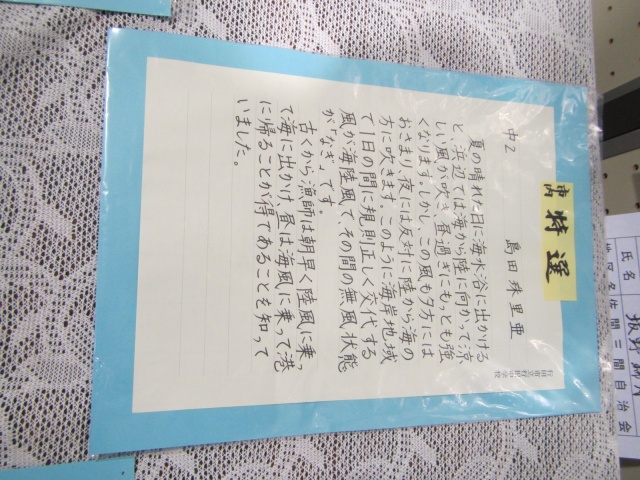 市内
特選
中2 島田珠里亜
夏の晴れた日に海水谷に出かける
と、浜辺では海から陸に向かって涼
しい風が吹き、昼過ぎにもっとも強
くなります。しかし、この風も夕方には
おさまり、夜には反対に陸から海の
方に吹きます。このように海岸地域
で1日の間に規則正しく交代する
風が海陸風で、その間の無風状態
が「なぎ」です。
古くから漁師は朝早く陸風に乗っ
て海に出かけ、昼は海風に乗って港
に帰ることが得であることを知って
いました。
氏名
地区名 佐間三間自治会